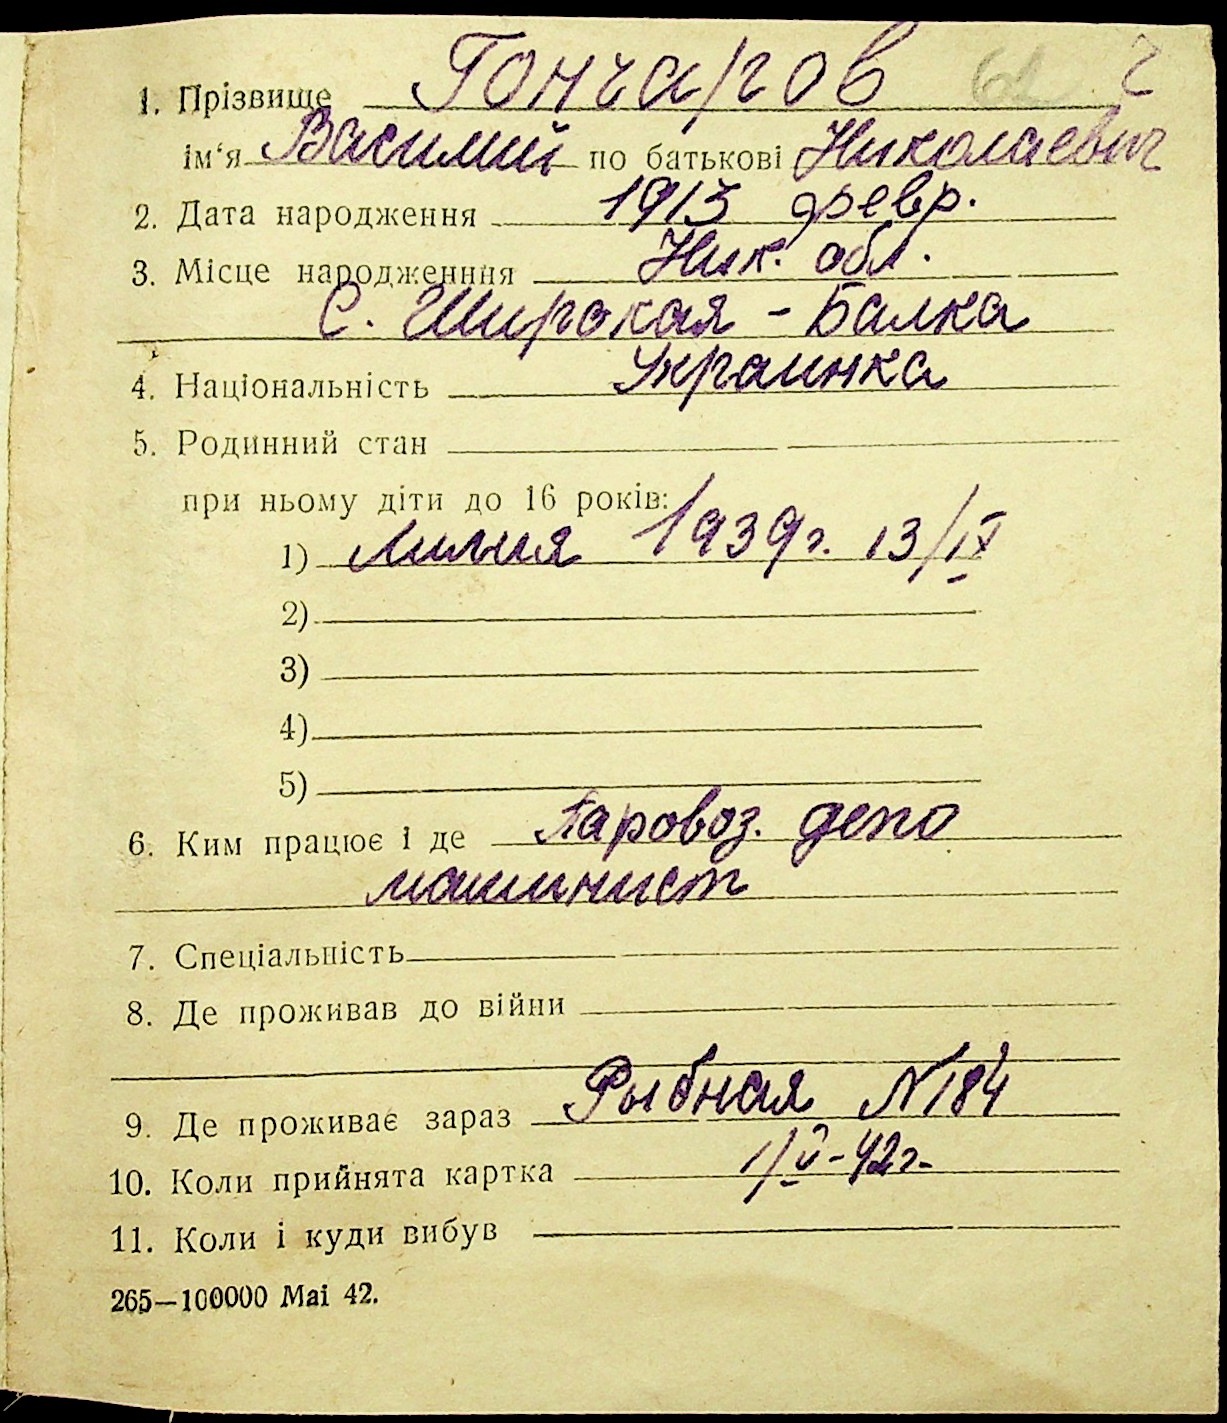 1. Прізвище Гончаров
ім‘я Василий по батькові Николаевич
2. Дата народження 1913 февр.
3. Місце народженння Ник. обл.
С. Широкая - Балка
4. Національність Украинка
5. Родинний стан
при ньому діти до 16 років:
1) Лилия 1939г. 13/IX
2)
3)
4)
5)
6. Ким працює і де Паровоз. депо
машинист
7. Спеціальність
8. Де проживав до війни
9. Де проживає зараз Рыбная N184
10. Коли прийнята картка 1/V-42г.
11. Коли і куди вибув
265—100000 Маі 42.